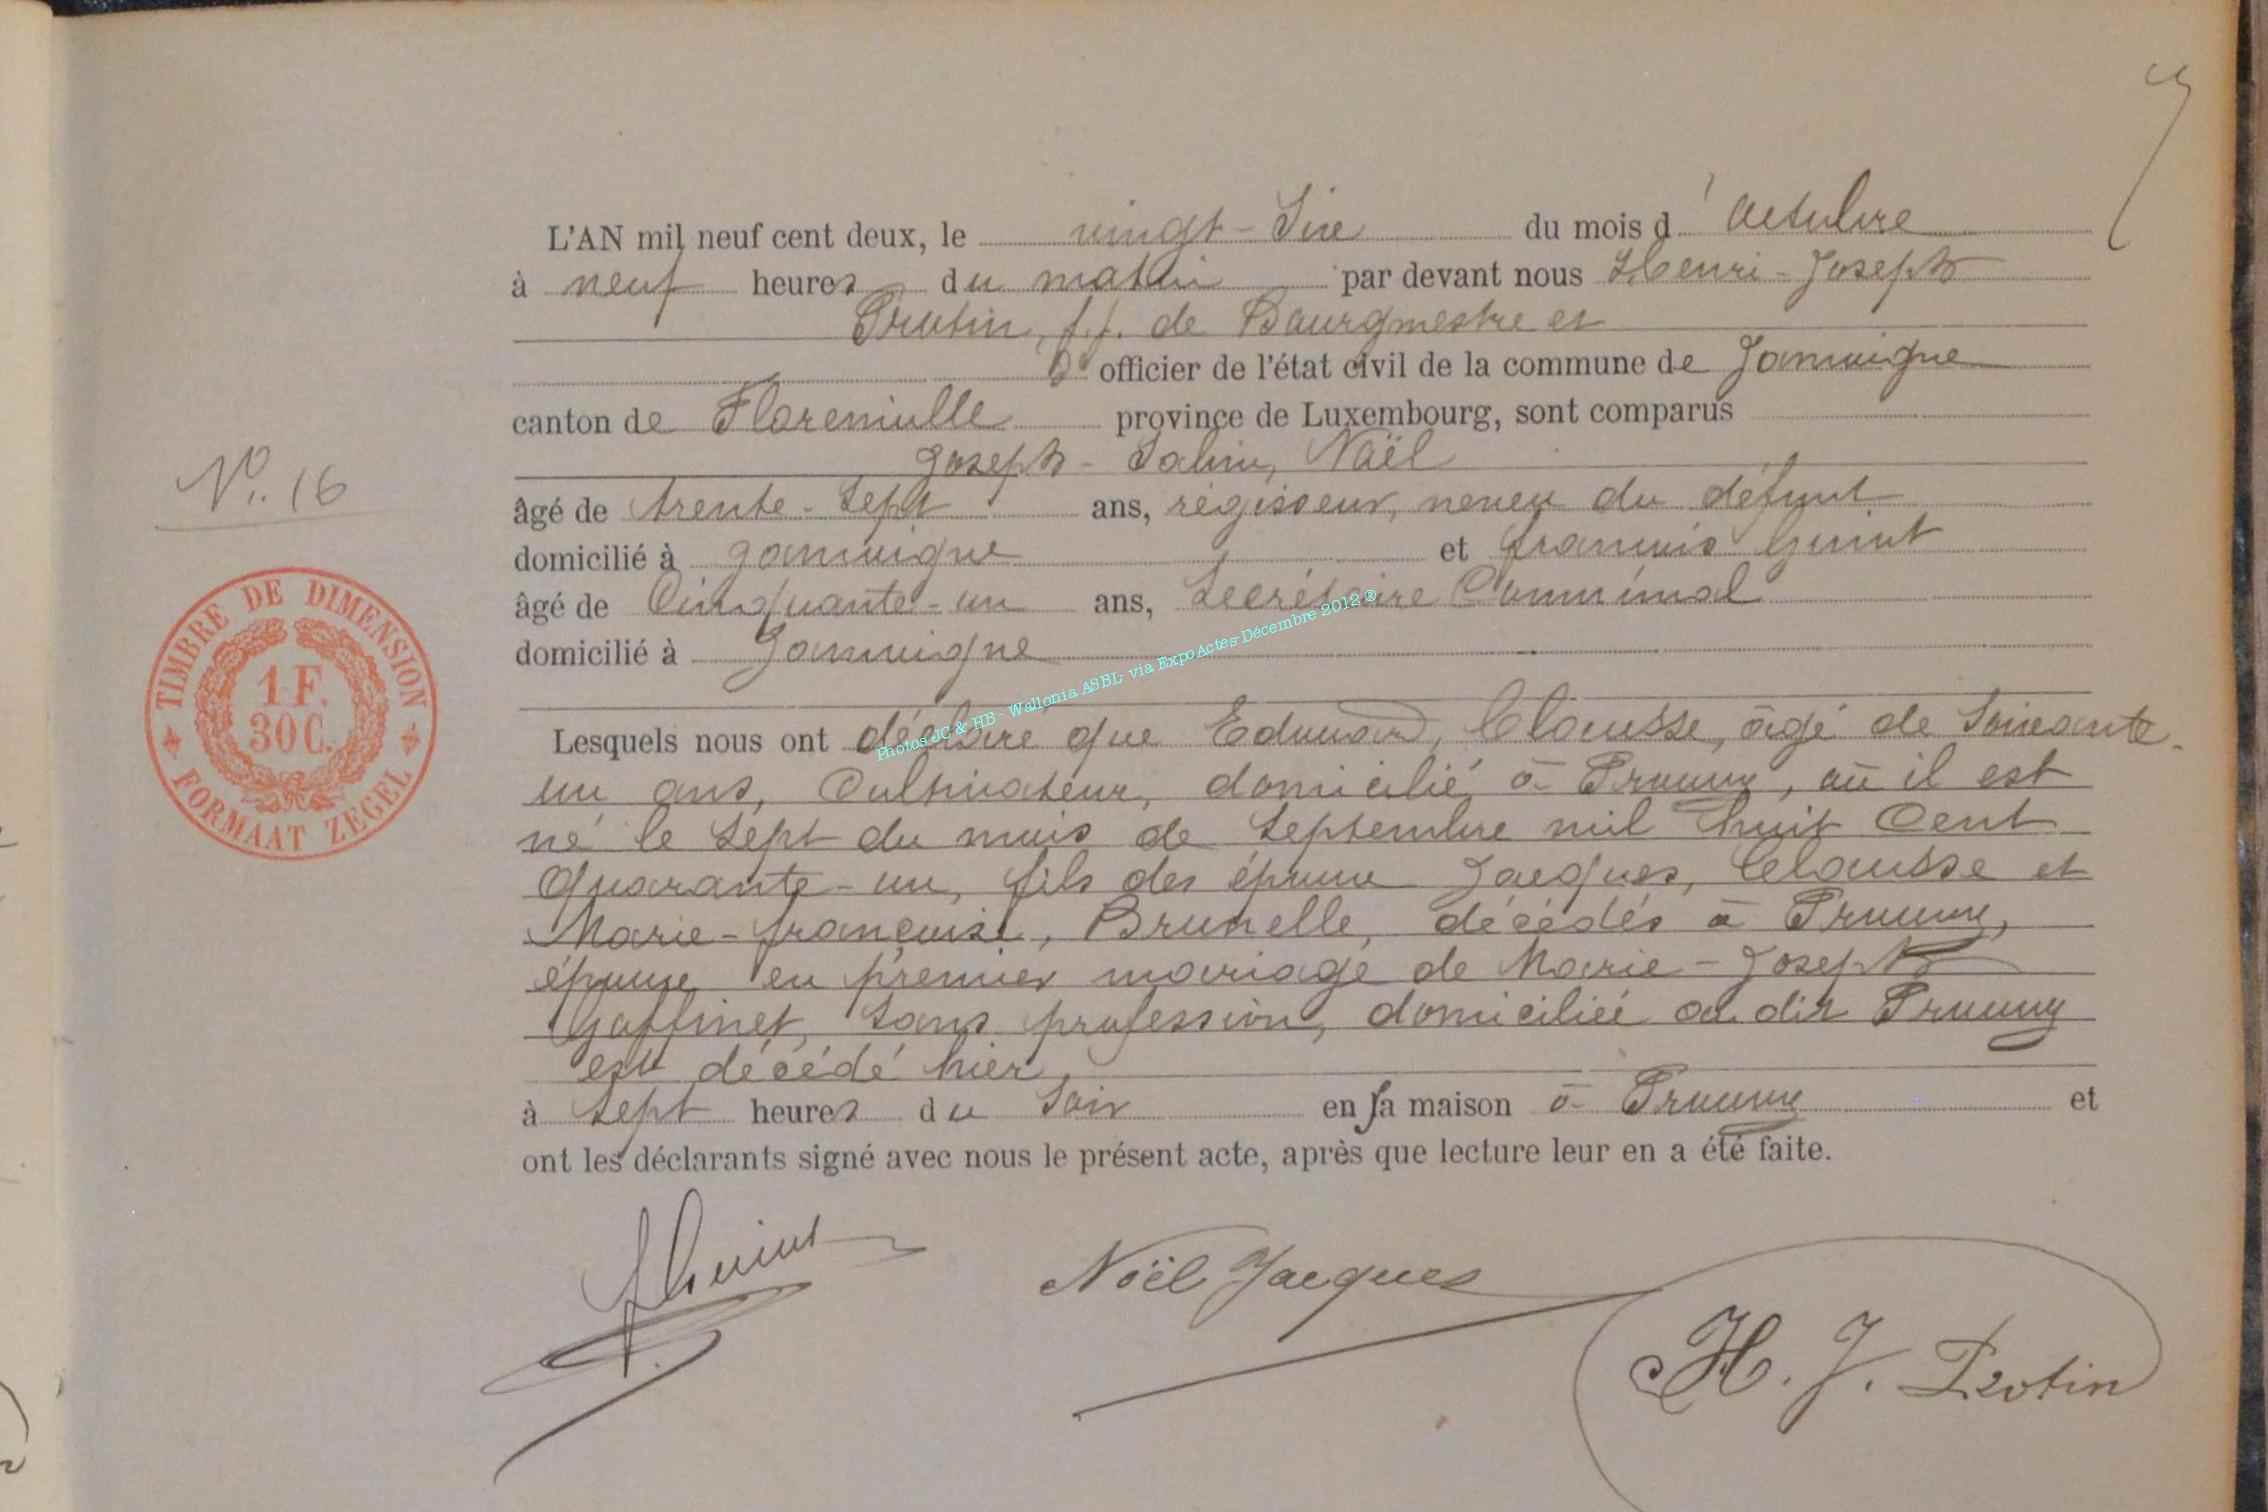 L'AN mil neuf cent deux, le vingt-Six du mois d'Octobre
à neuf heures du matin par devant nous Henri-Joseph
Protin, f.f. de Bourgmestre et
d' officier de l'état civil de la commune de Jamoigne
canton de Florenville province de Luxembourg, sont comparus
Joseph-Salim, Noël
N°. 16
âgé de trente-sept ans, régisseur, neveu du défunt
domicilié à Jamoigne et François Guiot
âgé de Cinquante-un ans, Secrétaire Communal
domicilié à Jamoigne
TIMBRE DE DIMENSION
1 F.
30 C.
FORMAAT ZEGEL
Photos JC & HB - Wallonia ASBL via ExpoActes Décembre 2012 ®
Lesquels nous ont déclaré que Edouard, Clausse, âgé de Soixante-
un ans, Cultivateur, domicilié à Prouvy, où il est
né le Sept du mois de Septembre mil huit Cent
Quarante-un, fils des époux Jacques, Clausse et
Marie-Françoise, Brunelle, décédés à Prouvy,
époux en premier mariage de Marie-Joseph
Goffinet, Sans profession, domiciliée au dit Prouvy
est décédé hier
à Sept heures du Soir en sa maison à Prouvy et
ont les déclarants signé avec nous le présent acte, après que lecture leur en a été faite.
Noël Jacques
H. J. Protin